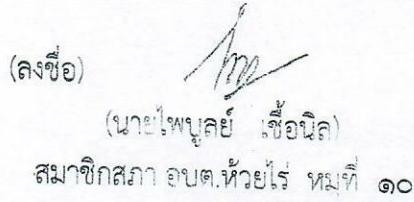 (ลงชื่อ)
(นายไพบูลย์ เชื้อนิล)
สมาชิกสภา อบต.ห้วยไร่ หมู่ที่ ๑๐